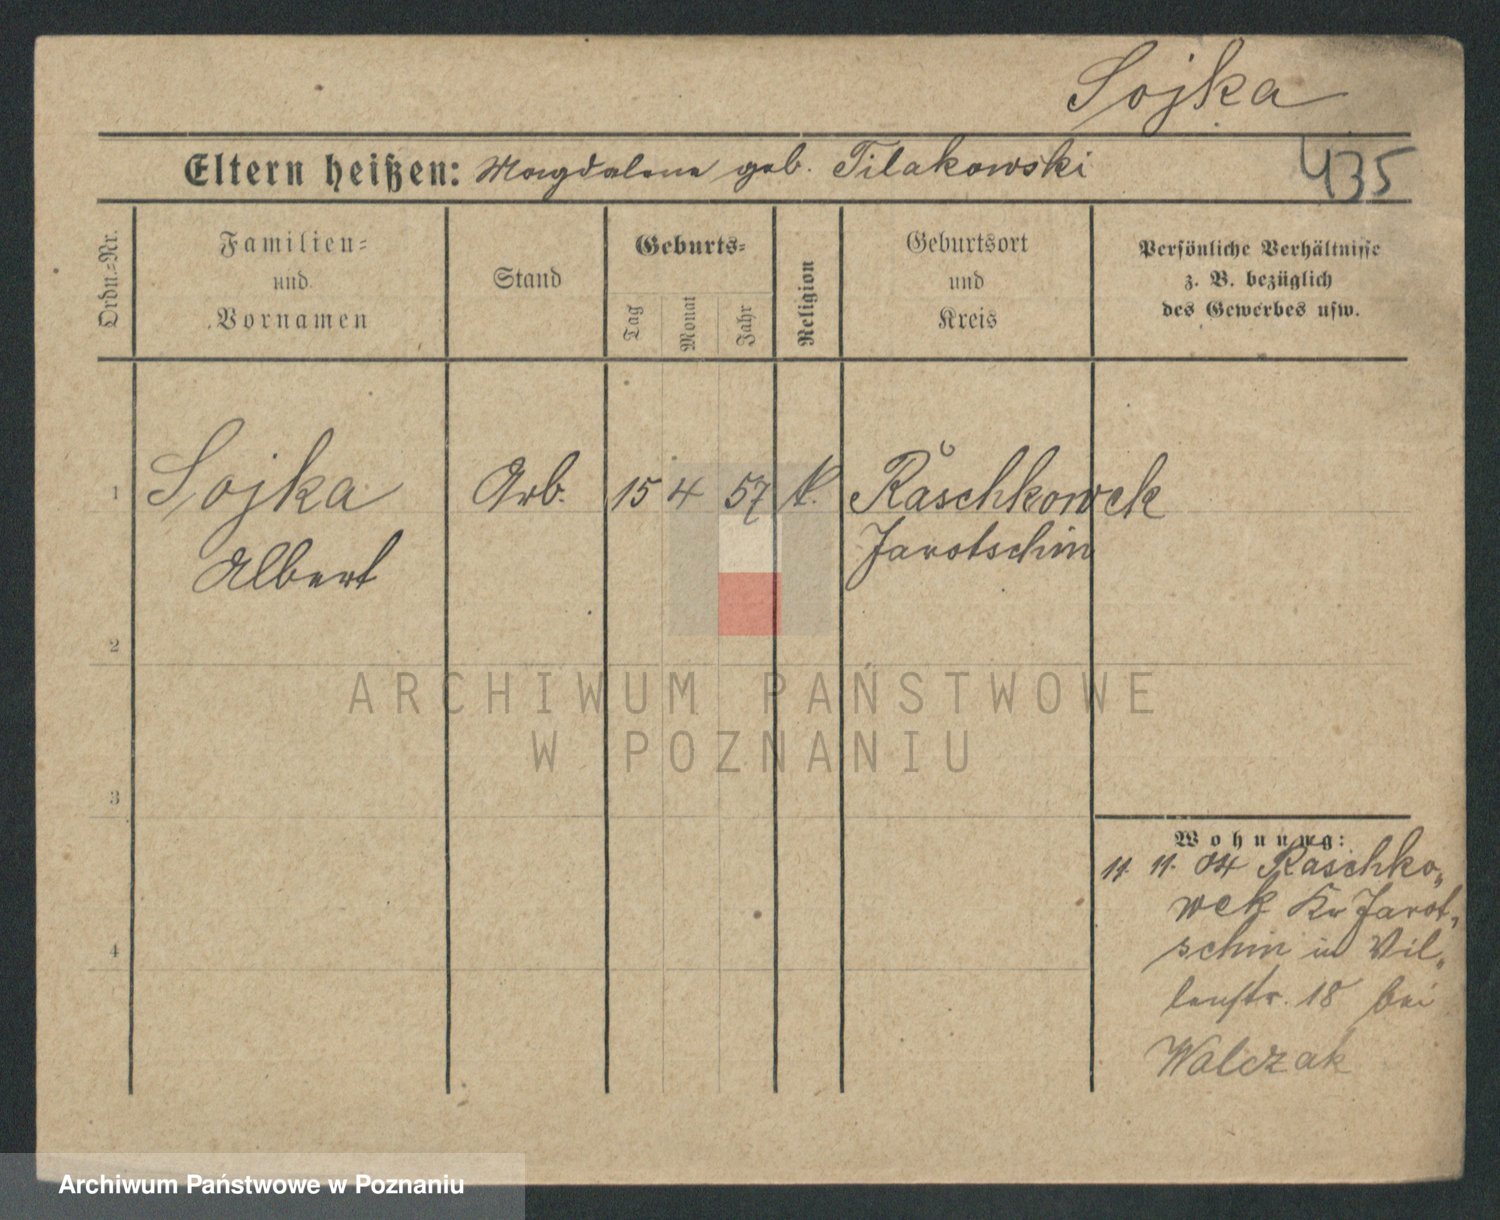 Sojka
Eltern heißen: Magdalena geb. Filakowski
435
Ordn.=Nr.
Familien=
und
Vornamen
Stand
Geburts=
Tag
Monat
Jahr
Religion
Geburtsort
und
Kreis
Persönliche Verhältnisse
z. B. bezüglich
des Gewerbes usw.
1 Sojka Arb. 15 4 57 k. Raschkowek
Albert Jarotschin
2
3
4
Wohnung:
11. 11. 04 Raschko„
wek Kr Jarot„
schin in Vil„
lenstr. 18 bei
Walczak
ARCHIWUM PAŃSTWOWE
W POZNANIU
Archiwum Państwowe w Poznaniu